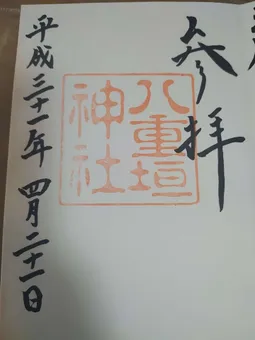 参拝
八重垣
神社
平成三十一年四月二十一日